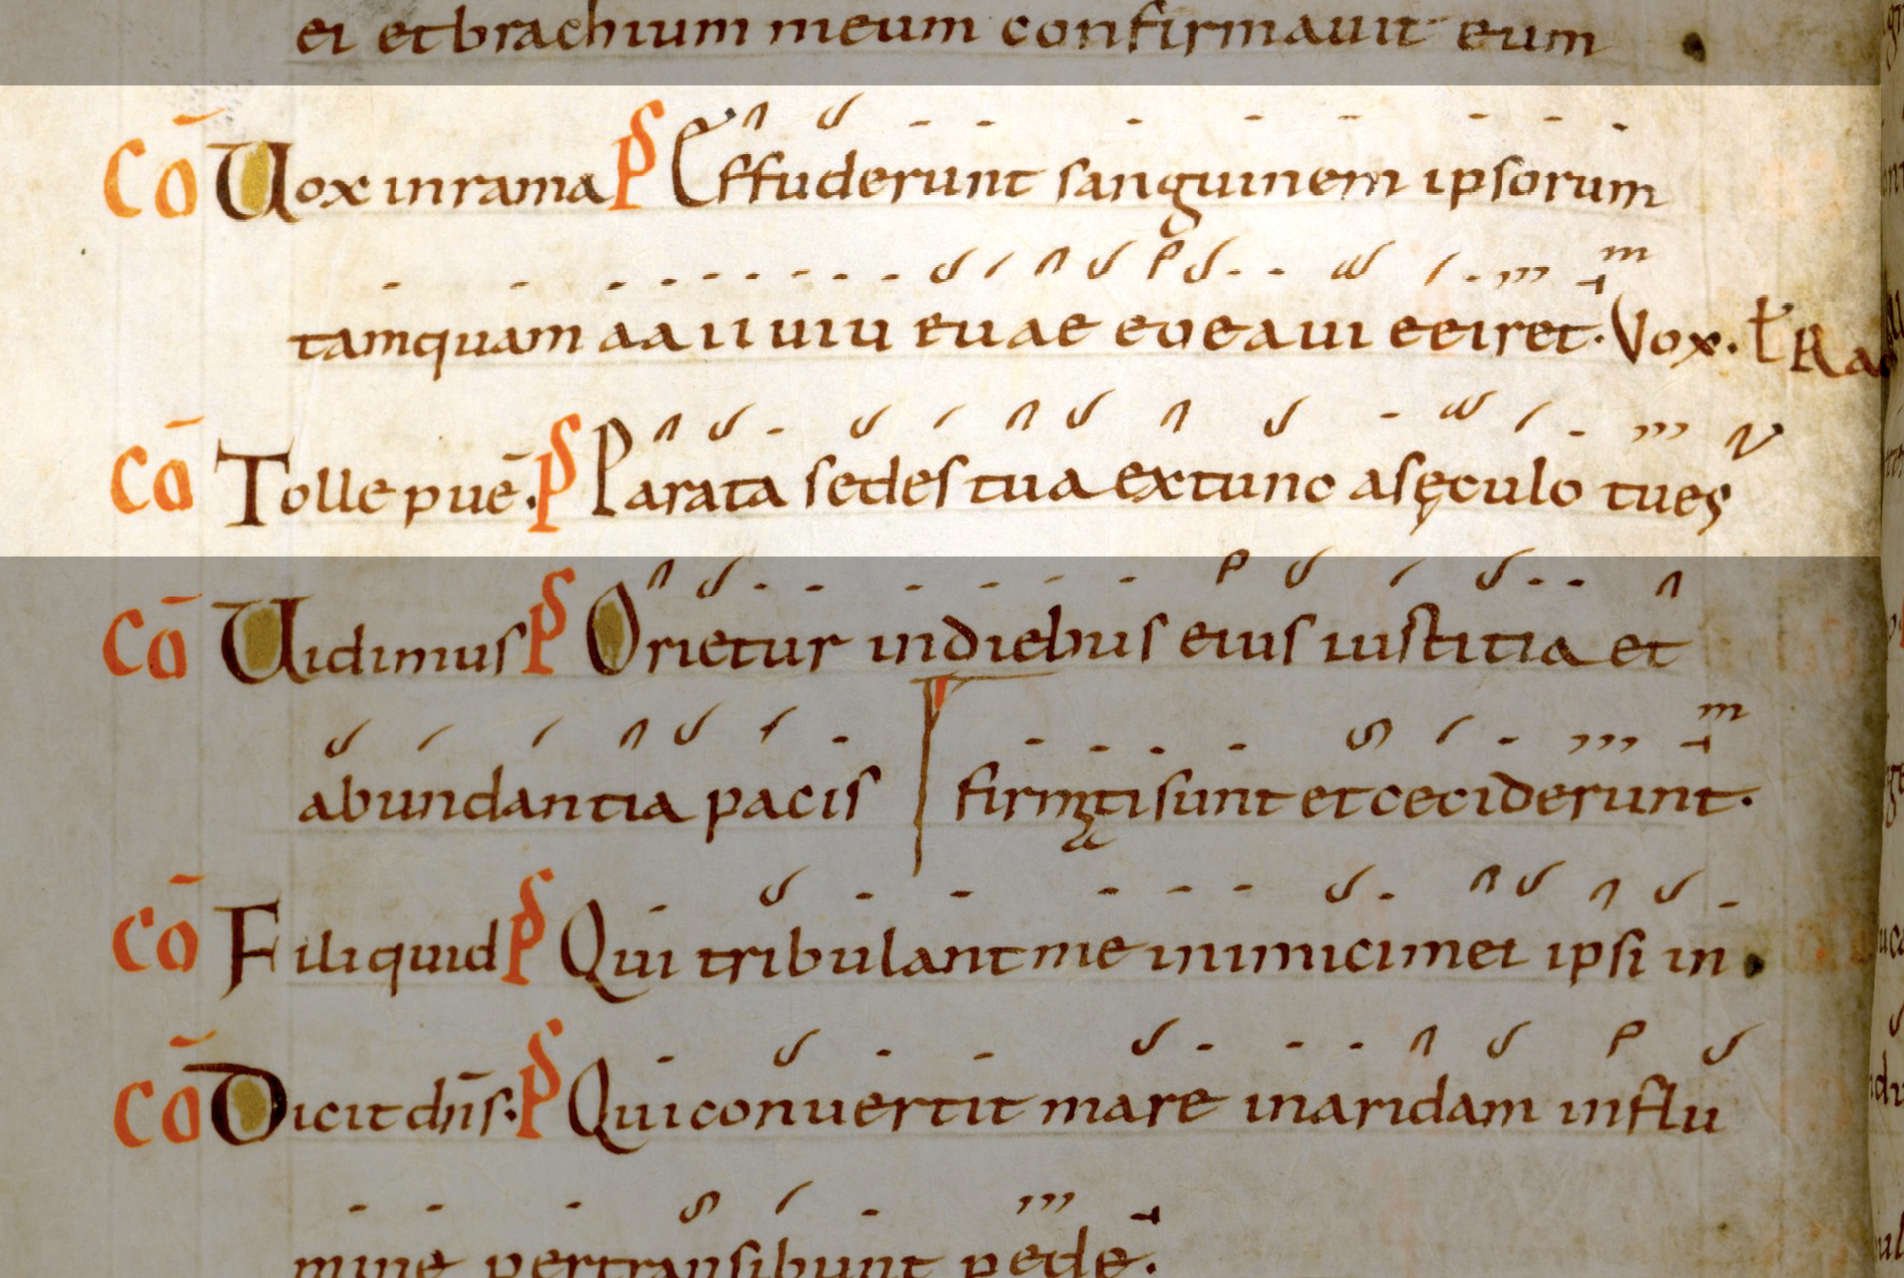 ei et brachium meum confirmauit eum
Cō Uox in rama PS Effuderunt sanguinem ipsorum
m
tamquam a a i i u i u euae eueaui eeiret. Vox. Ra
Cō Tolle pue PS Parata sedes tua ex tunc a sęculo tu es
Cō Uidimus PS Orietur in diebus eius iustitia et
m
abundantia pacis firmati sunt et ceciderunt.
Cō Fili quid PS Qui tribulant me inimici mei ipsi in
Cō Dicit dn̄s. PS Qui conuertit mare in aridam in flu
mine pertransibunt pede.